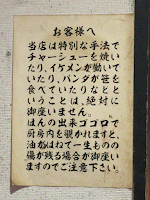 お客様へ
当店は特別な手法で
チャーシューを焼い
たり、イケメンが働いて
いたり、パンダが笹を
食べていたりなどと
ということは、絶対に
御座いません。
ほんの出来ゴコロで
厨房内を覗かれますと、
油がはねて一生ものの
傷が残る場合が御座い
ますのでご注意下さい。